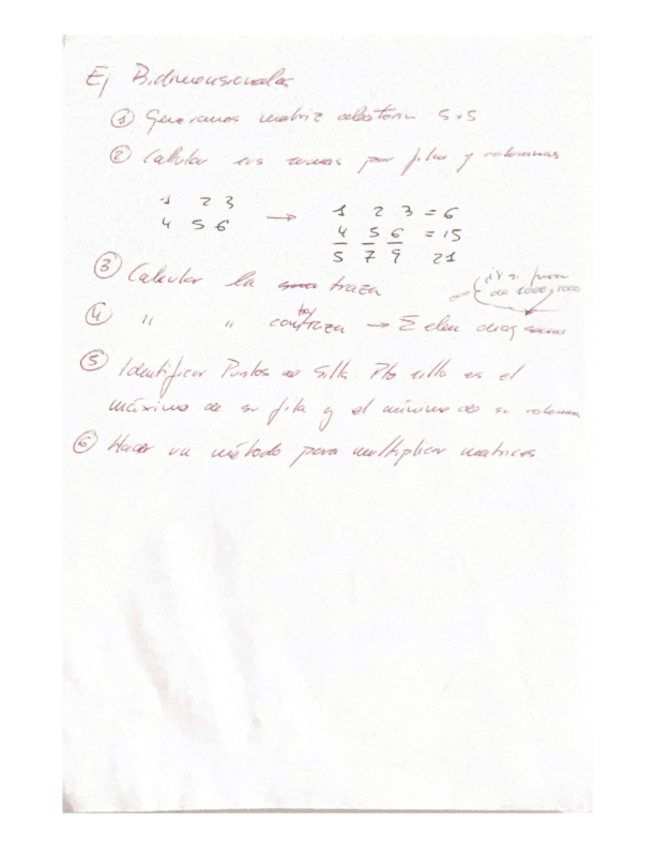 Ej Bidimensionales
① Generamos matriz aleatoria 5x5
② Calcular sus sumas por filas y columnas
1 2 3
4 5 6
→
1 2 3 = 6
4 5 6 = 15
5 7 9 21
③ Calcular la traza
④ " " contratraza → Σ elem diag
de 1000 y 1000
⑤ Identificar Puntos de Silla. Pto silla es el
máximo de su fila y el mínimo de su columna
⑥ Hacer un método para multiplicar matrices